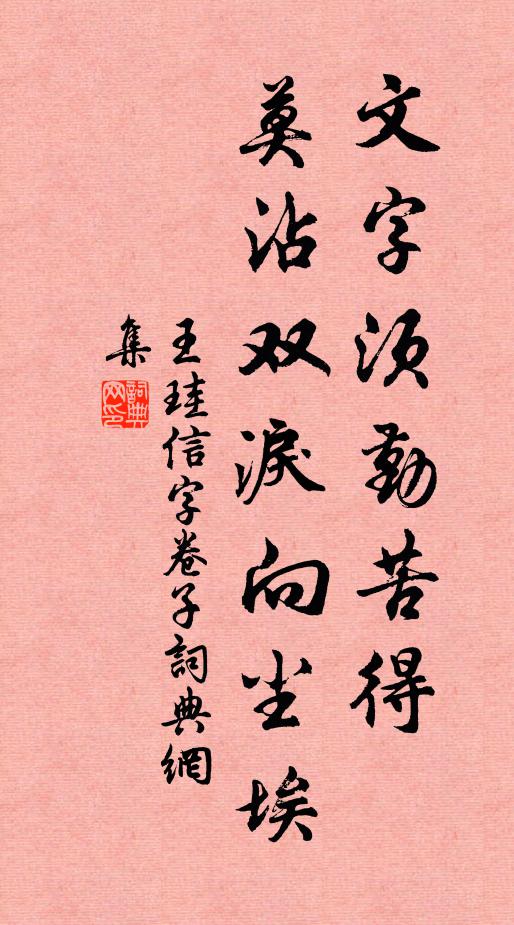 文字须勤苦得
莫沾双淚向尘埃
王珪信字卷子詞典網
集
詞典網印